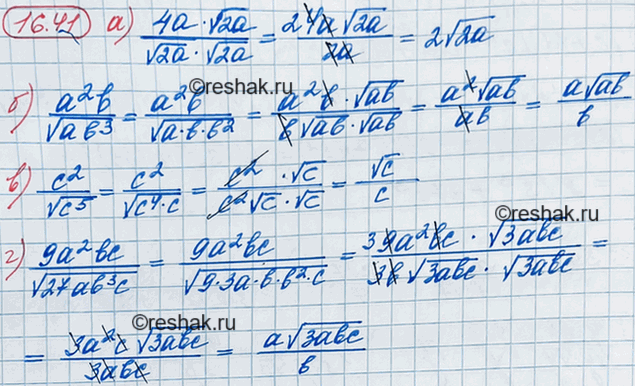 16.41 а) 4a·√2a / √2a·√2a = 2 4a √2a / 2a = 2√2a
©reshak.ru
б) a²b / √ab³ = a²b / √a·b·b² = a² b·√ab / b√ab·√ab = a²√ab / ab = a√ab / b
в) c² / √c⁵ = c² / √c⁴·c = c²·√c / c²√c·√c = √c / c
г) 9a²bc / √27ab³c = 9a²bc / √9·3a·b·b²·c = 3 9a²bc·√3abc / 3b√3abc·√3abc =
©reshak.ru
= 3a²c√3abc / 3abc = a√3abc / b